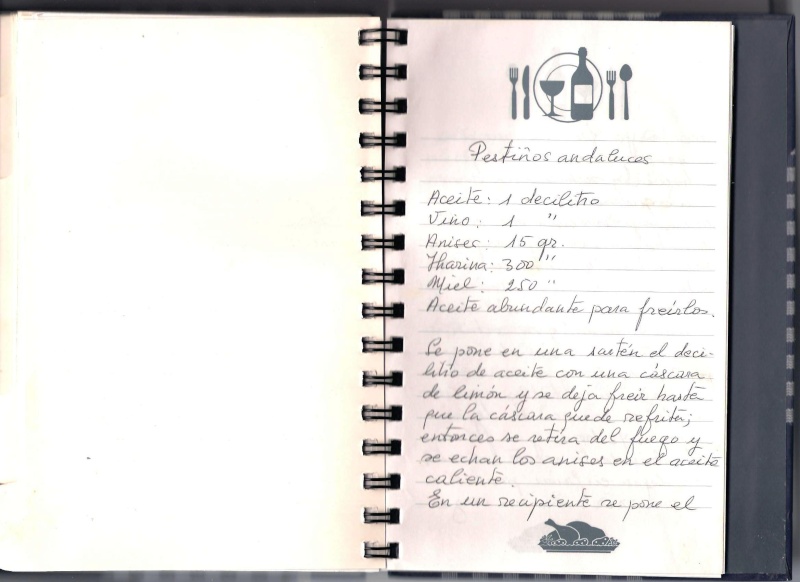 Pestiños andaluces
Aceite: 1 decilitro
Vino: 1 "
Anises: 15 gr.
Harina: 300 "
Miel: 250 "
Aceite abundante para freirlos.
Se pone en una sartén el deci-
litro de aceite con una cáscara
de limón y se deja freir hasta
que la cáscara quede refrita;
entonces se retira del fuego y
se echan los anises en el aceite
caliente.
En un recipiente se pone el